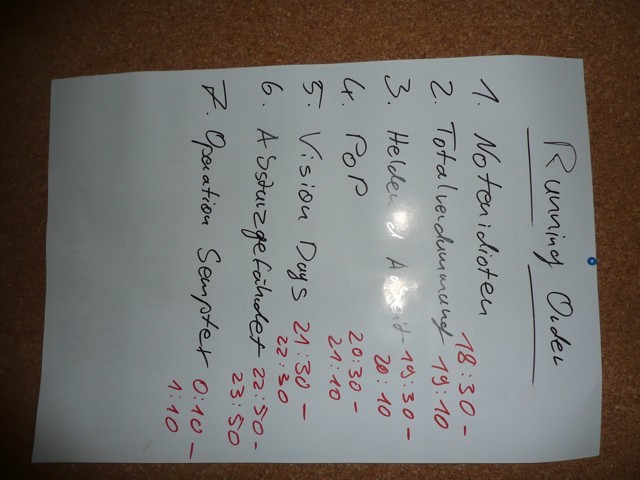 Running Order
1. Notenidioten 18:30-
2. Totalverdummung 19:10
3. Helden d Arbeit 19:30-
20:10
4. PoP 20:30-
21:10
5. Vision Days 21:30-
22:30
6. Absturzgefährdet 22:50-
23:50
7. Operation Sempter 0:10-
1:10